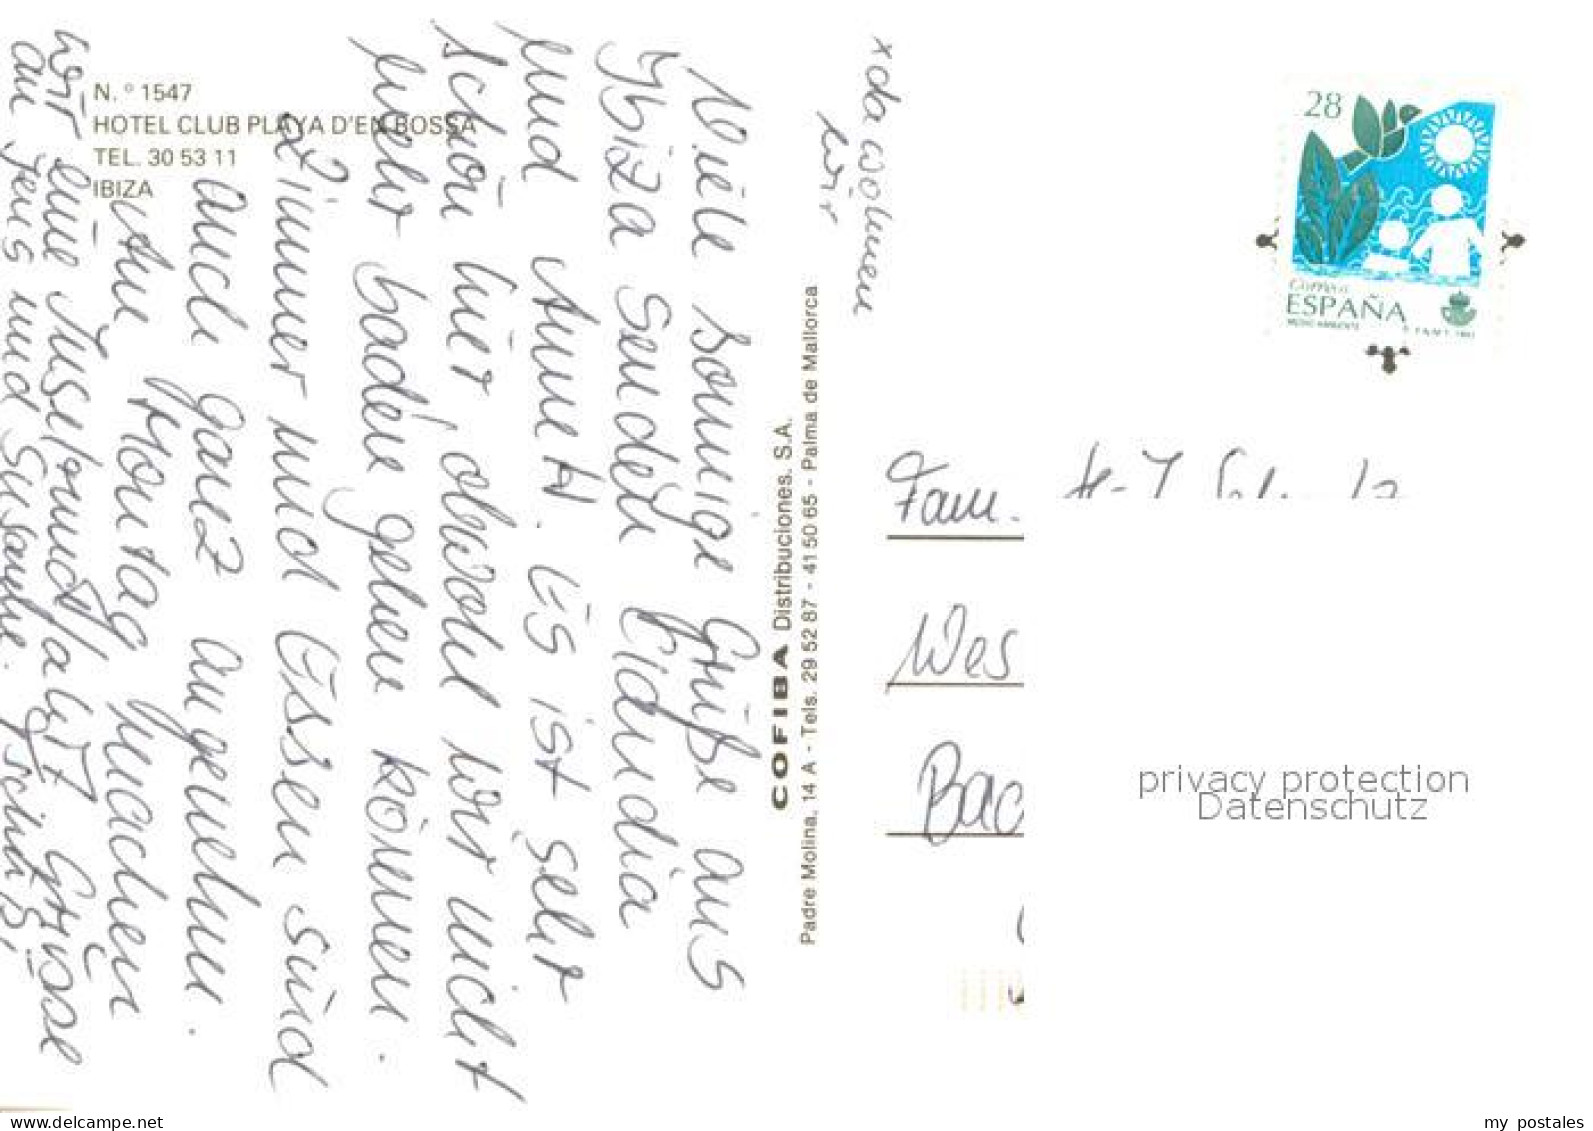 N.º 1547
HOTEL CLUB PLAYA D'EN BOSSA
TEL. 30 53 11
IBIZA
Viele sonnige Grüße aus
Ybiza senden Claudia
und Anne H. Es ist sehr
schön hier, obwohl wir nicht
mehr baden gehen können.
Zimmer und Essen sind
auch ganz angenehm.
Am Montag machen
wir eine Inselrundfahrt. Grüsse
an Jens und Susanne. Tschüß,
COFIBA Distribuciones. S.A.
Padre Molina, 14 A - Tels. 29 52 87 - 41 50 65 - Palma de Mallorca
x da wohnen
wir
28
Correos
ESPAÑA
MEDIO AMBIENTE
Fam.
Wes
Bad
privacy protection
Datenschutz
www.delcampe.net
my_postales